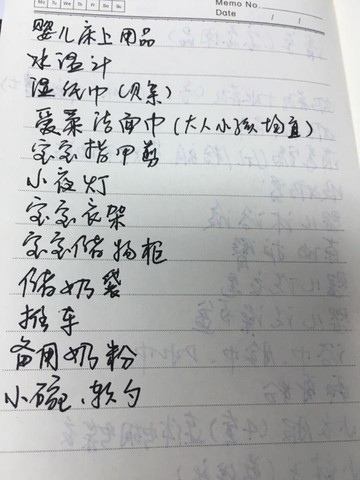 Mo Tu We Th Fr Sa Su
Memo No.
Date / /
婴儿床上用品
水温计
湿纸巾(贝亲)
爱茉洁面巾(大人小孩均宜)
宝宝指甲剪
小夜灯
宝宝衣架
宝宝储物柜
储奶袋
推车
备用奶粉
小碗、软勺